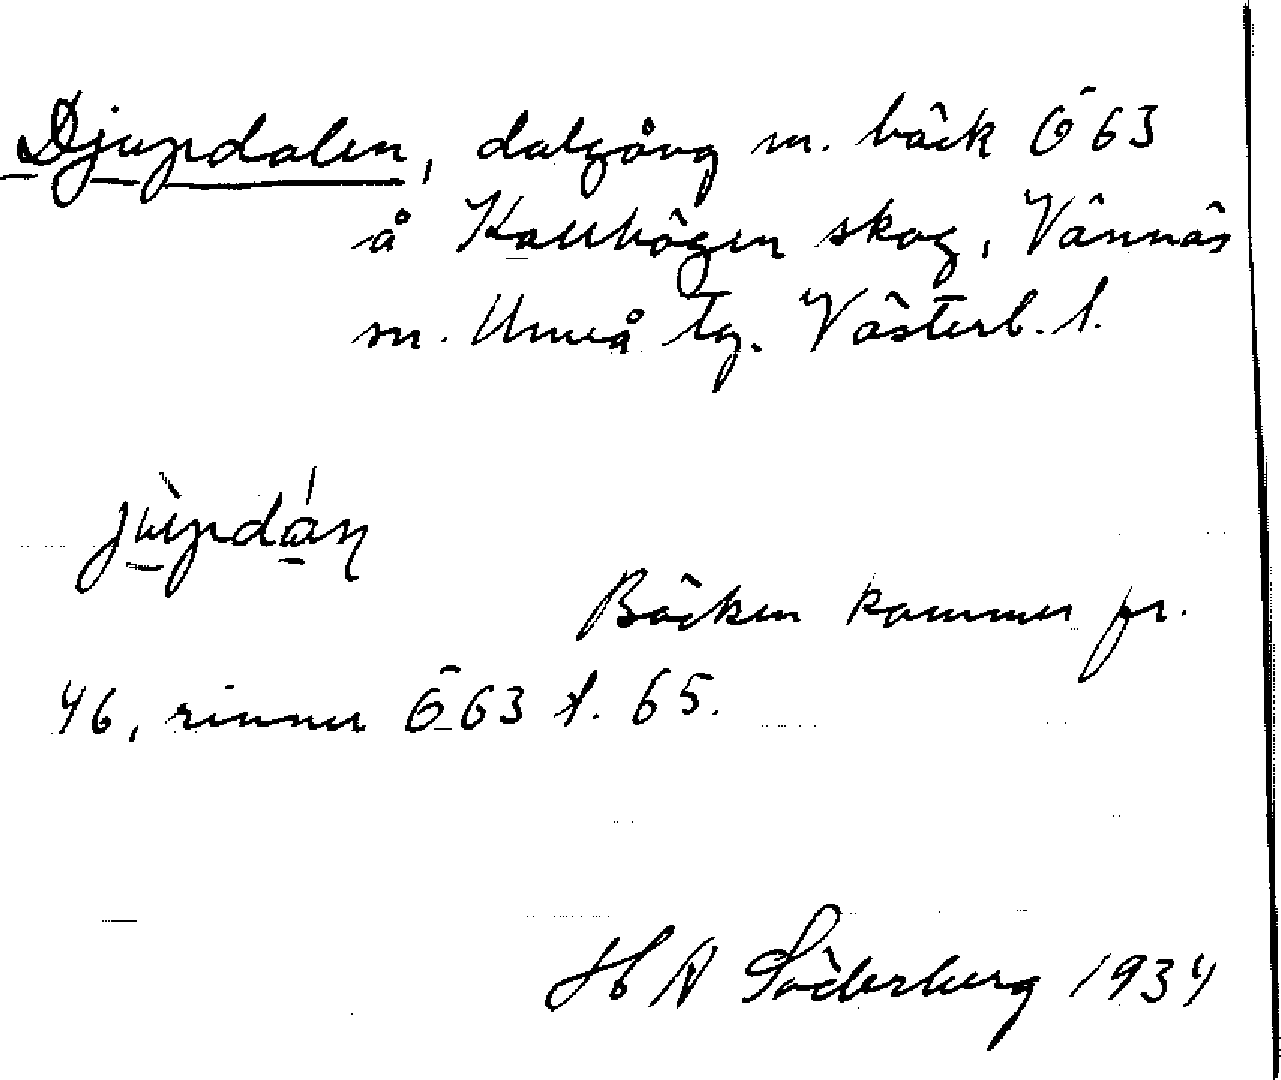 Djupdalen, dalgång m. bäck Ö 63
å Kallhögen skog, Vännäs
sn. Umeå tg. Västerb. l.
Bäcken kommer fr.
46, rinner Ö 63 t. 65.
H A Söderberg 1934